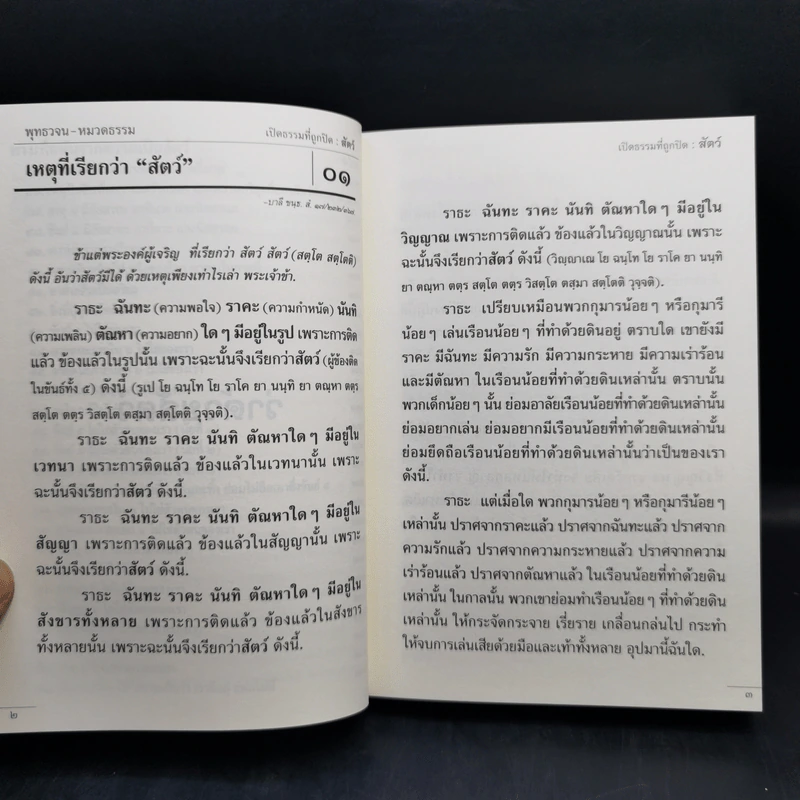 พุทธวจน-หมวดธรรม
เปิดธรรมที่ถูกปิด : สัตว์
เหตุที่เรียกว่า “สัตว์”
๐๑
-บาลี ขนฺธ. สํ. ๑๗/๒๓๒/๓๖๗
ข้าแต่พระองค์ผู้เจริญ ที่เรียกว่า สัตว์ สัตว์ (สตฺโต สตฺโตติ)
ดังนี้ อันว่าสัตว์มีได้ ด้วยเหตุเพียงเท่าไรเล่า พระเจ้าข้า.
ราธะ ฉันทะ (ความพอใจ) ราคะ (ความกำหนัด) นันทิ
(ความเพลิน) ตัณหา (ความอยาก) ใด ๆ มีอยู่ในรูป เพราะการติด
แล้ว ข้องแล้วในรูปนั้น เพราะฉะนั้นจึงเรียกว่าสัตว์ (ผู้ข้องติด
ในขันธ์ทั้ง ๕) ดังนี้ (รูเป โย ฉนฺโท โย ราโค ยา นนฺทิ ยา ตณฺหา ตตฺร
สตฺโต ตตฺร วิสตฺโต ตสฺมา สตฺโตติ วุจฺจติ).
ราธะ ฉันทะ ราคะ นันทิ ตัณหาใด ๆ มีอยู่ใน
เวทนา เพราะการติดแล้ว ข้องแล้วในเวทนานั้น เพราะ
ฉะนั้นจึงเรียกว่าสัตว์ ดังนี้.
ราธะ ฉันทะ ราคะ นันทิ ตัณหาใด ๆ มีอยู่ใน
สัญญา เพราะการติดแล้ว ข้องแล้วในสัญญานั้น เพราะ
ฉะนั้นจึงเรียกว่าสัตว์ ดังนี้.
ราธะ ฉันทะ ราคะ นันทิ ตัณหาใด ๆ มีอยู่ใน
สังขารทั้งหลาย เพราะการติดแล้ว ข้องแล้วในสังขาร
ทั้งหลายนั้น เพราะฉะนั้นจึงเรียกว่าสัตว์ ดังนี้.
๒
เปิดธรรมที่ถูกปิด : สัตว์
ราธะ ฉันทะ ราคะ นันทิ ตัณหาใด ๆ มีอยู่ใน
วิญญาณ เพราะการติดแล้ว ข้องแล้วในวิญญาณนั้น เพราะ
ฉะนั้นจึงเรียกว่าสัตว์ ดังนี้ (วิญฺญาเณ โย ฉนฺโท โย ราโค ยา นนฺทิ
ยา ตณฺหา ตตฺร สตฺโต ตตฺร วิสตฺโต ตสฺมา สตฺโตติ วุจฺจติ).
ราธะ เปรียบเหมือนพวกกุมารน้อย ๆ หรือกุมารี
น้อย ๆ เล่นเรือนน้อย ๆ ที่ทำด้วยดินอยู่ ตราบใด เขายังมี
ราคะ มีฉันทะ มีความรัก มีความกระหาย มีความเร่าร้อน
และมีตัณหา ในเรือนน้อยที่ทำด้วยดินเหล่านั้น ตราบนั้น
พวกเด็กน้อย ๆ นั้น ย่อมอาลัยเรือนน้อยที่ทำด้วยดินเหล่านั้น
ย่อมอยากเล่น ย่อมอยากมีเรือนน้อยที่ทำด้วยดินเหล่านั้น
ย่อมยึดถือเรือนน้อยที่ทำด้วยดินเหล่านั้นว่าเป็นของเรา
ดังนี้.
ราธะ แต่เมื่อใด พวกกุมารน้อย ๆ หรือกุมารีน้อย ๆ
เหล่านั้น ปราศจากราคะแล้ว ปราศจากฉันทะแล้ว ปราศจาก
ความรักแล้ว ปราศจากความกระหายแล้ว ปราศจากความ
เร่าร้อนแล้ว ปราศจากตัณหาแล้ว ในเรือนน้อยที่ทำด้วยดิน
เหล่านั้น ในกาลนั้น พวกเขาย่อมทำเรือนน้อย ๆ ที่ทำด้วยดิน
เหล่านั้น ให้กระจัดกระจาย เรี่ยราย เกลื่อนกล่นไป กระทำ
ให้จบการเล่นเสียด้วยมือและเท้าทั้งหลาย อุปมานี้ฉันใด.
๓